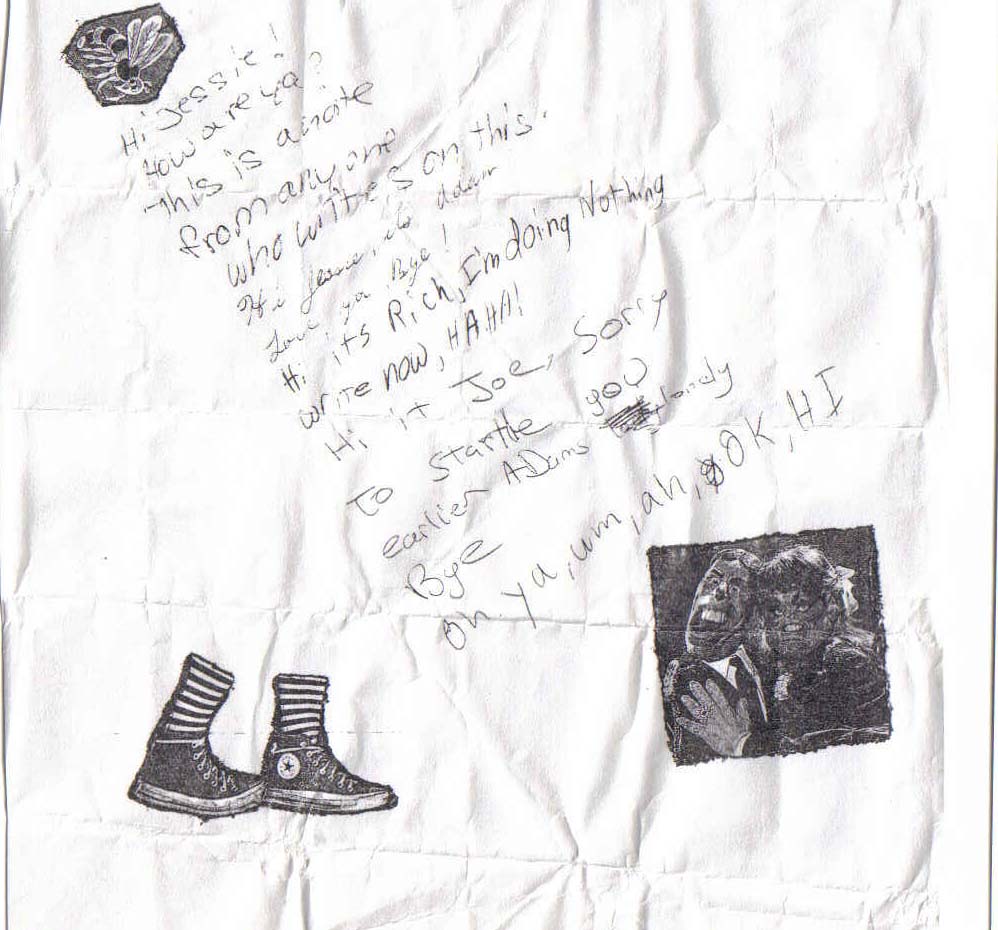 Hi Jessie!
How are ya?
This is a note
from anyone
who writes on this.
Hi Jessie, its Adam
Love, ya, Bye!
Hi its Rich, I'm doing Nothing
write now, HA HA!
Hi it Joe, Sorry
To startle you
earlier ADams
Bye
Oh ya, um, ah, OK, HI